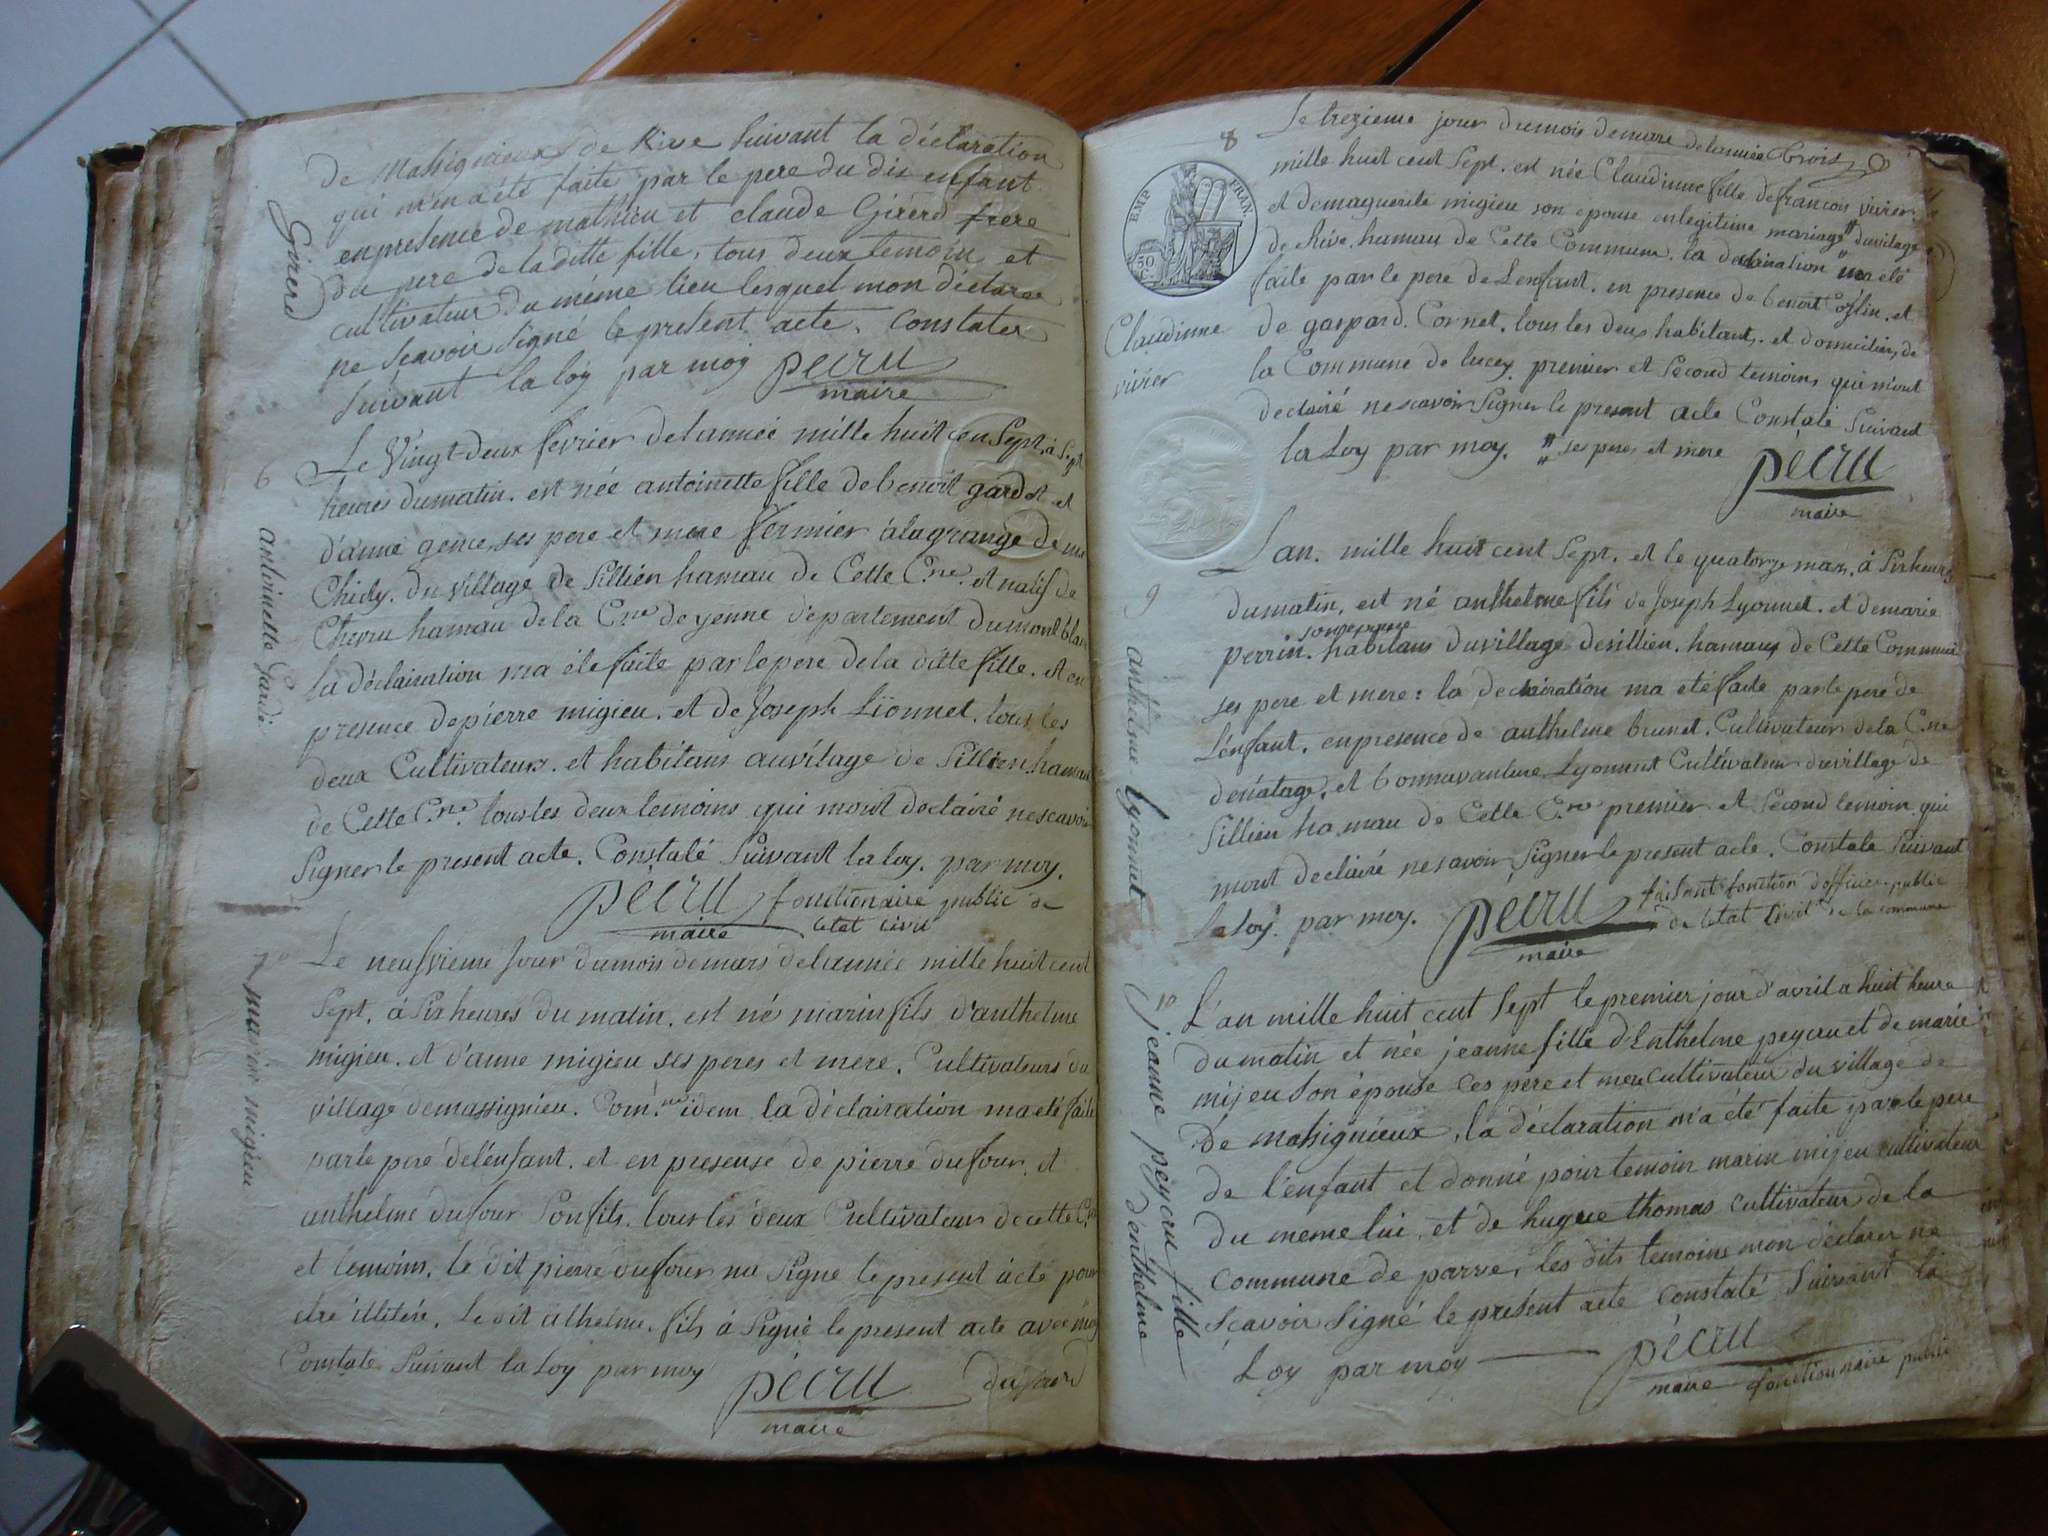 Girerd
de Massignieux de Rive suivant la déclaration
qui m'en a été faite par le pere du dis enfant
en presence de mathieu et claude Girerd frere
du pere de la ditte fille, tous deux temoin et
cultivateur du même lieu lesquel mon déclaree
ne scavoir signé le present acte, constater
suivant la loy par moy pecru
maire
6
antoinette Gardé
Le Vingt deux fevrier de lannée mille huit cen Sept, à Sept
heures dumatin. est née antoinette fille de benoit gardet et
d'anne ses pere et mere fermier à la grange de
Chidy. du village de Sillien hamau de Cette C.ne et natif de
hamau dela C.ne de yenne département dumontblanc
La déclairation ma été faite par le pere de la ditte fille. et en
presence de pierre migieu. et de Joseph Lionnet. tous les
deux Cultivateurs. et habitans au vilage de Sillien hamau
de Cette C.ne tous les deux temoins qui mont declairé ne scavoir
Signer le present acte. Constaté Suivant la loy. par moy.
pécru fonctionaire public de
maire letat civil
7e
marin migieu
Le neufvieme Jour dumois demars delannée mille huit cent
Sept, à Six heures du matin. est né marin fils d'anthelme
migieu. et d'anne migieu ses peres et mere. Cultivateurs du
village demassignieu. Com.ne idem la déclairation ma été faite
par le pere de l'enfant. et en presense de pierre dufour, et
anthelme dufour Son fils. tous les deux Cultivateurs de cette C.ne
et temoins. le dit pierre dufour na Signé le present acte pour
étre illitéré. Le dit athelme. fils à Signé le present acte avec moy
Constaté Suivant la Loy par moy pécru dufour
maire
8
EMP FRAN
50
C
Claudinne
vivier
Le trezieme jour dumois demars de lannée
mille huit cent Sept. est née Claudinne fille de francois vivier
et demaguerite migieu son épouse en legitime mariage " duvilage
de Rive, hamau de Cette Commune. la declairation ma eté
faite par le pere de Lenfant. en presence de benoit et
de gaspard. Cornet. tous les deux habitants. et domicilies de
la Commune de lucey premier et Second temoins, qui mont
declairé ne scavoir Signer le present acte Constaté Suivant
la Loy par moy. " ses peres et mere pécru
maire
9
anthelme Lyonnet
Lan. mille huit cent Sept. et le quatorze mars. à Six heures
dumatin, est né anthelme fils de Joseph Lyonnet. et demarie
son epouse
perrin. habitans duvillage desillien. hamaux de Cette Commune
ses pere et mere : la declairation ma eté faite par le pere de
Lenfant. en presence de anthelme brunet. Cultivateur de la C.ne
et bonnavanture Lyonnet Cultivateur duvillage de
Sillien hamau de Cette C.ne premier et Second temoin qui
mont declairé ne savoir Signer le present acte. Constaté Suivant
la Loy. par moy. pécru faisant fonction d'officier public
maire de letat Civil de la commune
10
jeanne peycru fille
denthelme
L'an mille huit cent Sept le premier jour d'avril a huit heure
du matin et née jeanne fille d'Enthelme peycru et de marie
mijeu son épouse Ces pére et mere cultivateur du village de
De massignieux, la déclaration m'a été faite par le pere
de l'enfant et donné pour temoin marin mijeu cultivateur
du meme lui, et de hugue thomas cultivateur de la
commune de parve, les dits temoins mon déclarer ne
Scavoir Signé le present acte Constaté Suivant la
Loy par moy pécru
maire fonctionnaire public